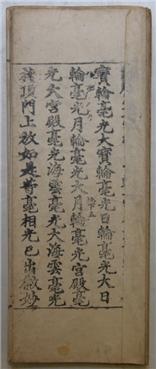 寶輪毫光大寶輪毫光日輪毫光大日
輪毫光月輪毫光大月輪毫光宮殿毫
光大宮殿毫光海雲毫光大海雲毫光
於頂門上放如是等毫相光已出微妙